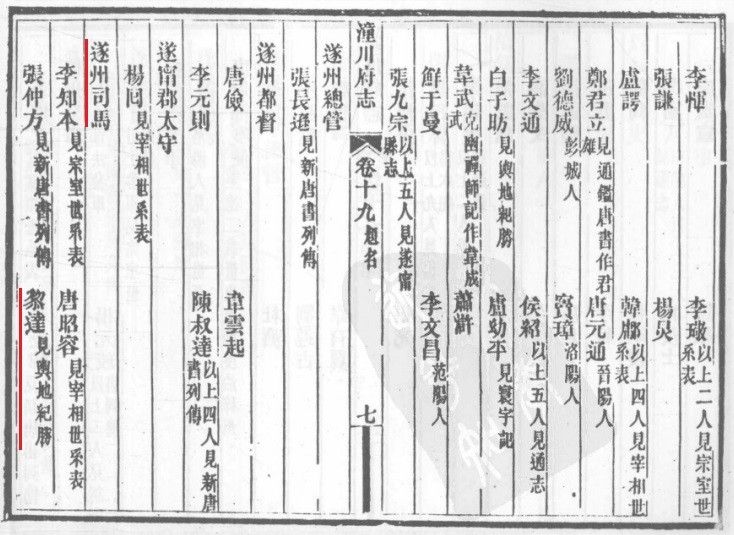 李惲 李璥以上二人見宗室世系表
張謙 楊炅
盧諤 韓以上四人見宰相世系表
鄭君立見通鑑唐書作君雄 唐元通晉陽人
劉德威彭城人 竇璋洛陽人
李文通 侯紹以上五人見通志
白子昉見輿地紀勝 盧幼平見寰宇記
韋武克幽禪師記作韋成武 蕭澣
鮮于曼 李文昌范陽人
張九宗以上五人見遂甯縣志
潼川府志 卷十九 題名 七
遂州總管
張長遜見新唐書列傳
遂州都督
唐儉 韋雲起
李元則 陳叔達以上四人見新唐書列傳
遂甯郡太守
楊囘見宰相世系表
遂州司馬
李知本見宗室世系表 唐昭容見宰相世系表
張仲方見新唐書列傳 黎達見輿地紀勝